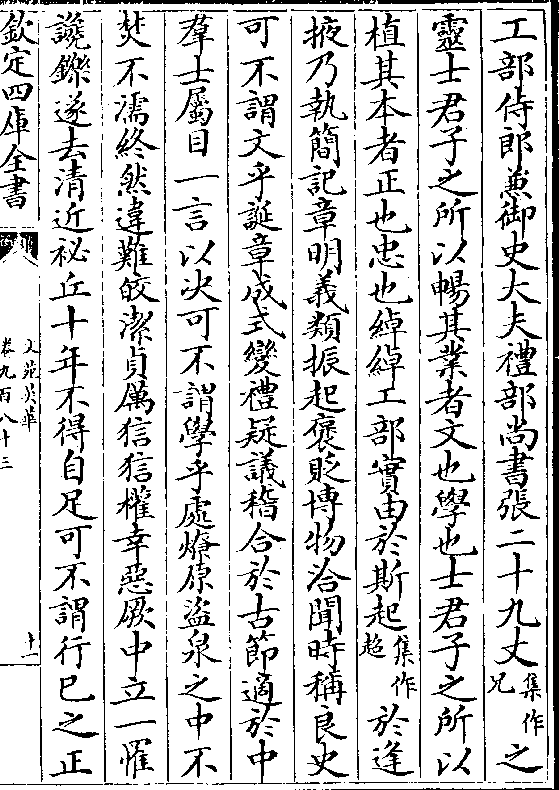 工部侍郎兼御史大夫禮部尚書張二十九丈集作兄之
靈士君子之所以暢其業者文也學也士君子之所以
植其本者正也忠也綽綽工部實由於斯起集作趍於逢
掖乃執簡記章明義類振起褒貶博物洽聞時稱良史
可不謂文乎誕章成式變禮疑議稽合於古節適於中
羣士屬目一言以決可不謂學乎處燎原盜泉之中不
焚不濡終然違難皎潔貞厲狺狺權幸惡厥中立一罹
讒鑠遂去清近祕丘十年不得自足可不謂行已之正
欽定四庫全書
文苑英華
卷九百八十三
十一